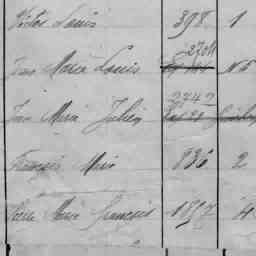 Victor Louis 398 1
2704
Jean Marie Louis
2742
Jean Marie Julien
François Marie 836 2
Pierre Marie François 1897 4